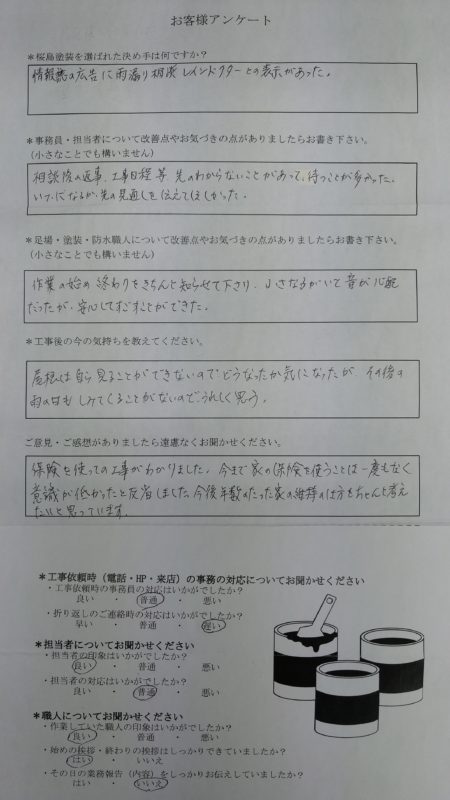 お客様アンケート
＊桜島塗装を選ばれた決め手は何ですか？
情報誌の広告に雨漏り相談 レインドクターとの表示があった。
＊事務員・担当者について改善点やお気づきの点がありましたらお書き下さい。
（小さなことでも構いません）
相談後の返事、工事日程等、先のわからないことがあって、待つことが多かった。
いつになるか、先の見通しを伝えてほしかった。
＊足場・塗装・防水職人について改善点やお気づきの点がありましたらお書き下さい。
（小さなことでも構いません）
作業の始め 終わりをきちんと知らせて下さり、 がいて 音が心配
だったが、安心してすごすことができた。
＊工事後の今の気持ちを教えてください。
屋根は自ら見ることができないので、どうなったか気になったが、その後の
雨の日も しみてくることがないので、うれしく思う。
ご意見・ご感想がありましたら遠慮なくお聞かせください。
保険を使っての工事がわかりました。今まで家の保険を使うことは一度もなく
意識が低かったと反省しました。今後年数のたった家の維持の仕方をちゃんと考え
たいと思っています。
＊工事依頼時（電話・HP・来店）の事務の対応についてお聞かせください
・工事依頼時の事務員の対応はいかがでしたか？
良い ・ 普通 ・ 悪い
・折り返しのご連絡時の対応はいかがでしたか？
早い ・ 普通 ・ 遅い
＊担当者についてお聞かせください
・担当者の印象はいかがでしたか？
良い ・ 普通 ・ 悪い
・担当者の対応はいかがでしたか？
良い ・ 普通 ・ 悪い
＊職人についてお聞かせください
・作業していた職人の印象はいかがでしたか？
良い ・ 普通 ・ 悪い
・始めの挨拶・終わりの挨拶はしっかりできていましたか？
はい ・ いいえ
・その日の業務報告（内容）をしっかりお伝えしていましたか？
はい ・ いいえ